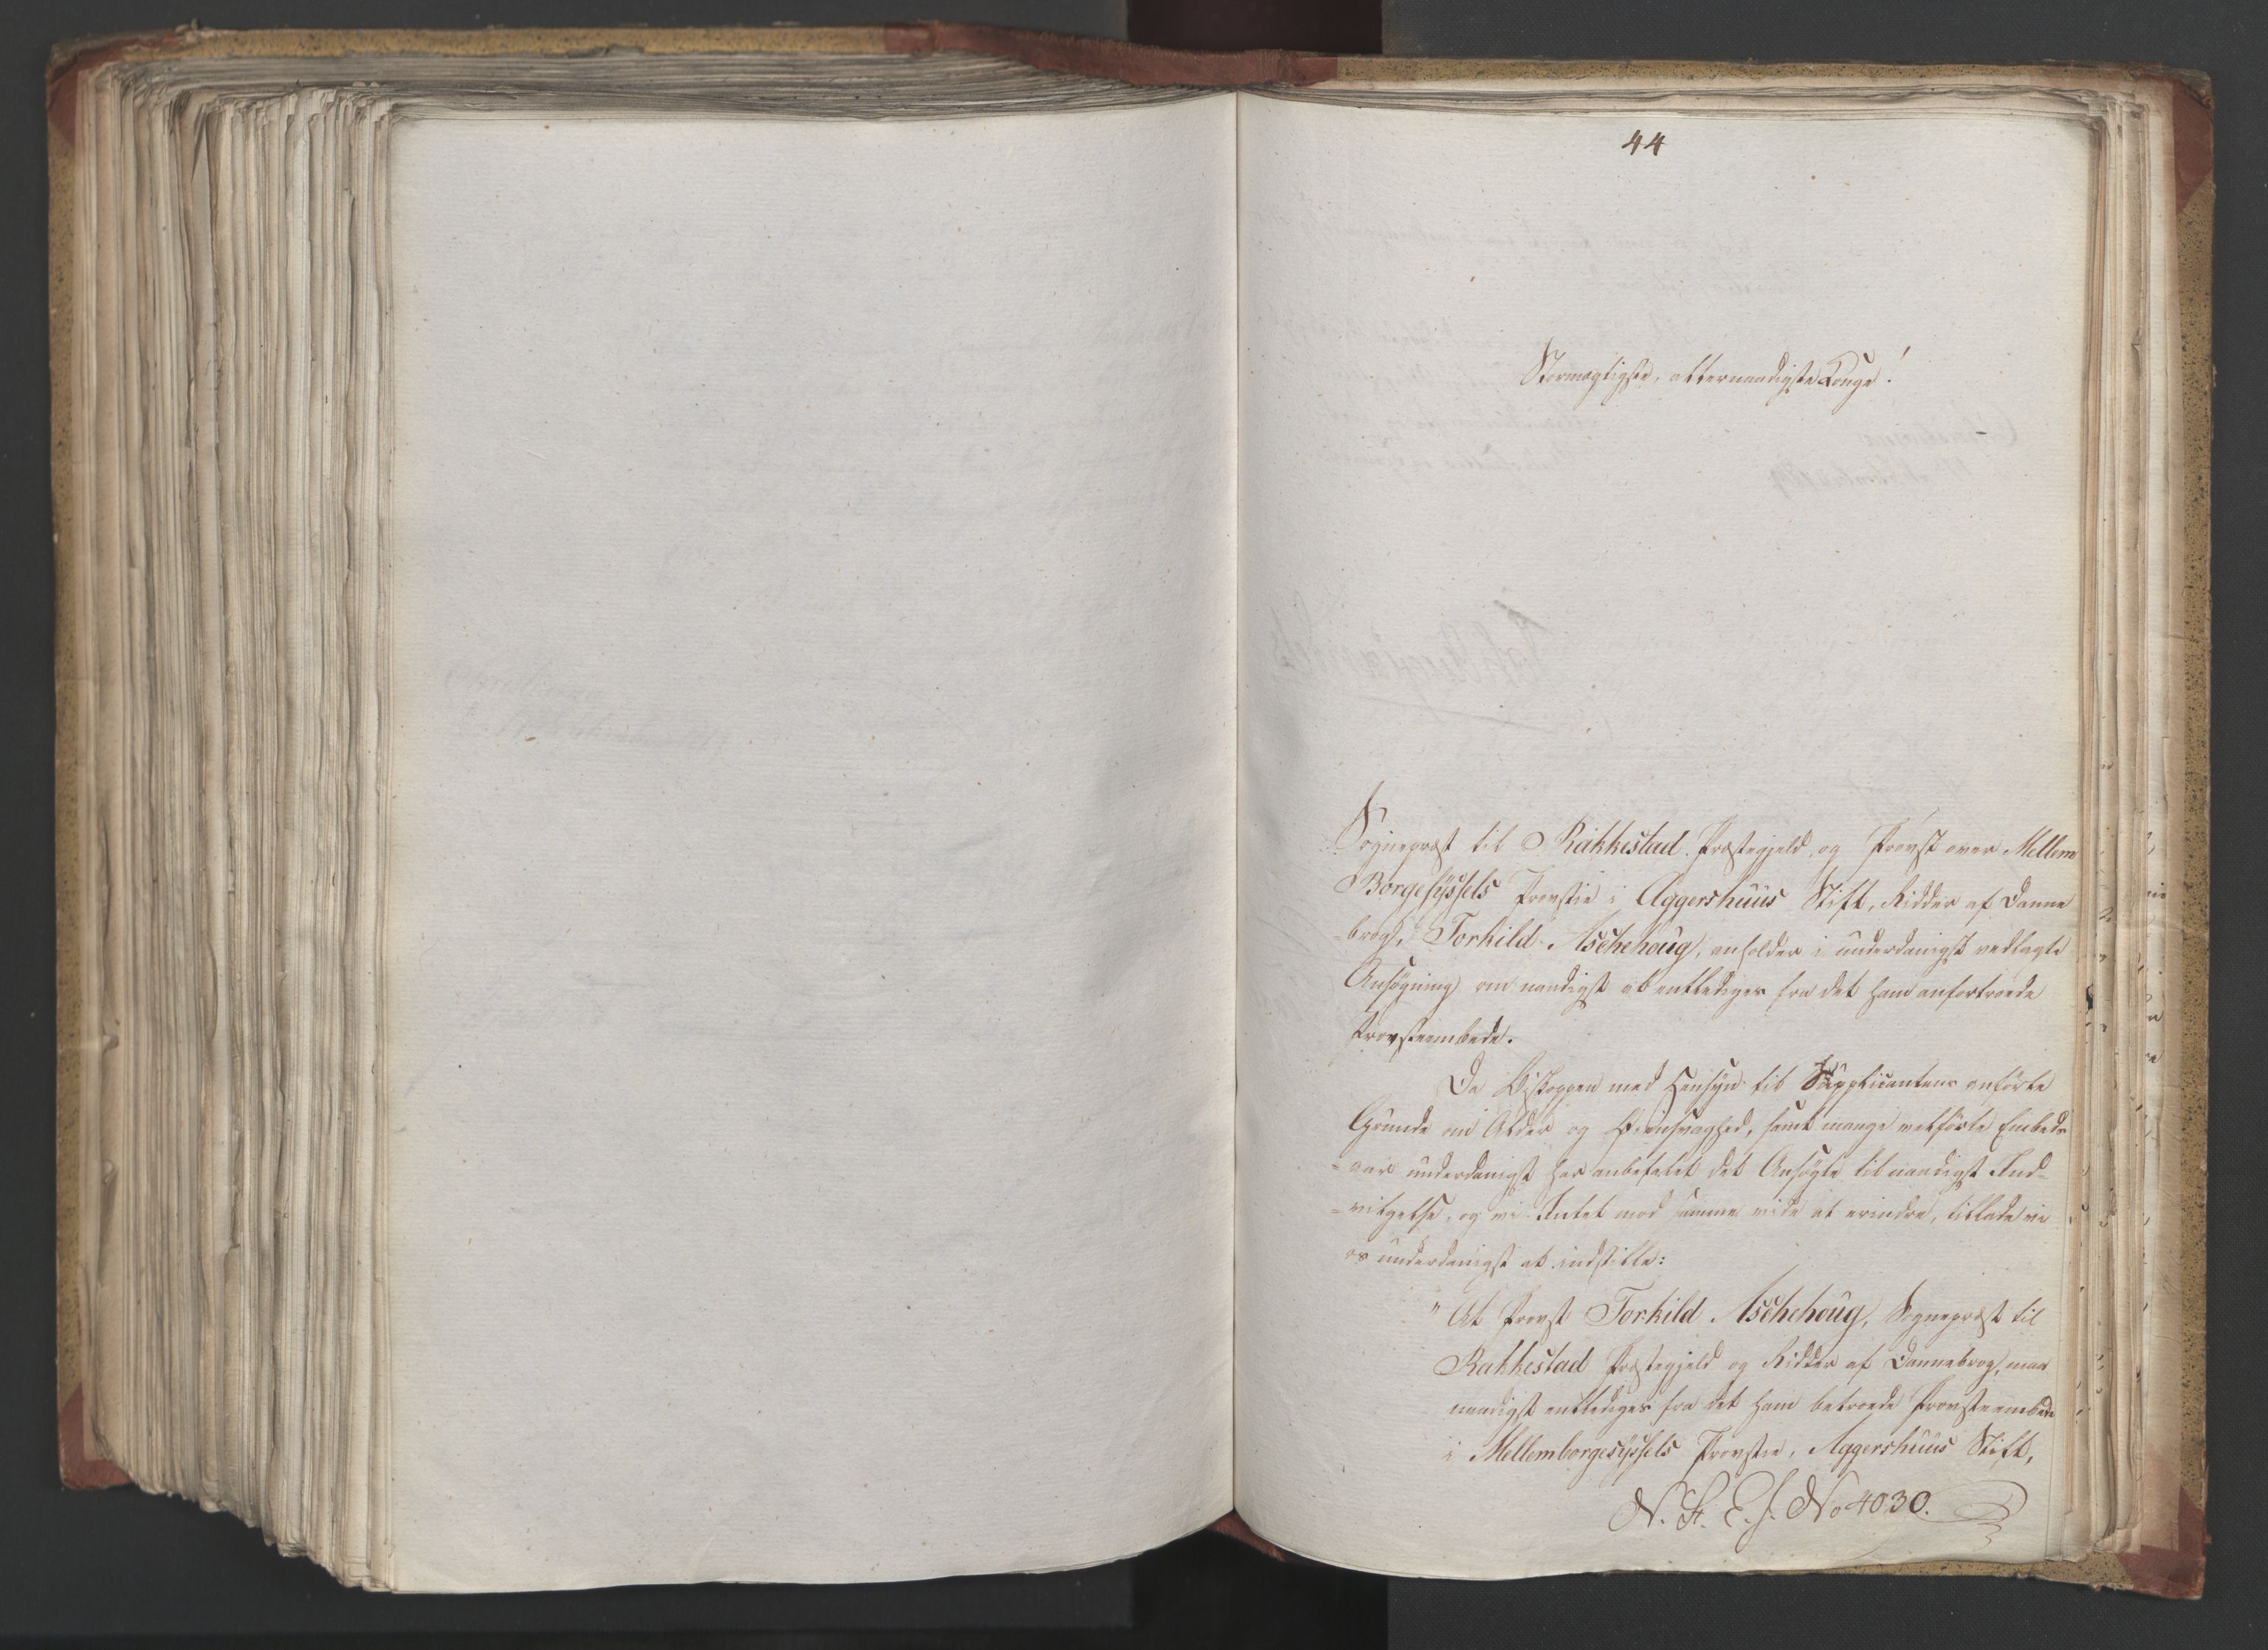 44
Stormægtigste, allernaadigste Konge!
Sogneprest til Rakkestad Prestegjeld og Provst over Mellem
Borgesyssels Provstie i Aggershuus Stift, Ridder af Danne
-brog, Torkild Aschehoug, anholder i underdanigst vedlagte
Ansøgning om naadigst at entlediges fra det ham anfortroede
Provsteembede.
Da Biskoppen med Hensyn til Supplicantens anførte
Grunde om Alder og Øiensvaghed, samt mange velførte Embeds
-aar underdanigst har anbefalet det Ansøgte til naadigst Ind-
-vilgelse, og vi Intet mod samme vide at erindre, tillade vi
os underdanigst at indstille:
" At Provst Torkild Aschehoug, Sogneprest til
Rakkestad Prestegjeld og Ridder af Dannebrog, maa
naadigst entlediges fra det ham betroede Provsteembede
i Mellemborgesyssels Provstie, Aggershuus Stift,
No 4030.